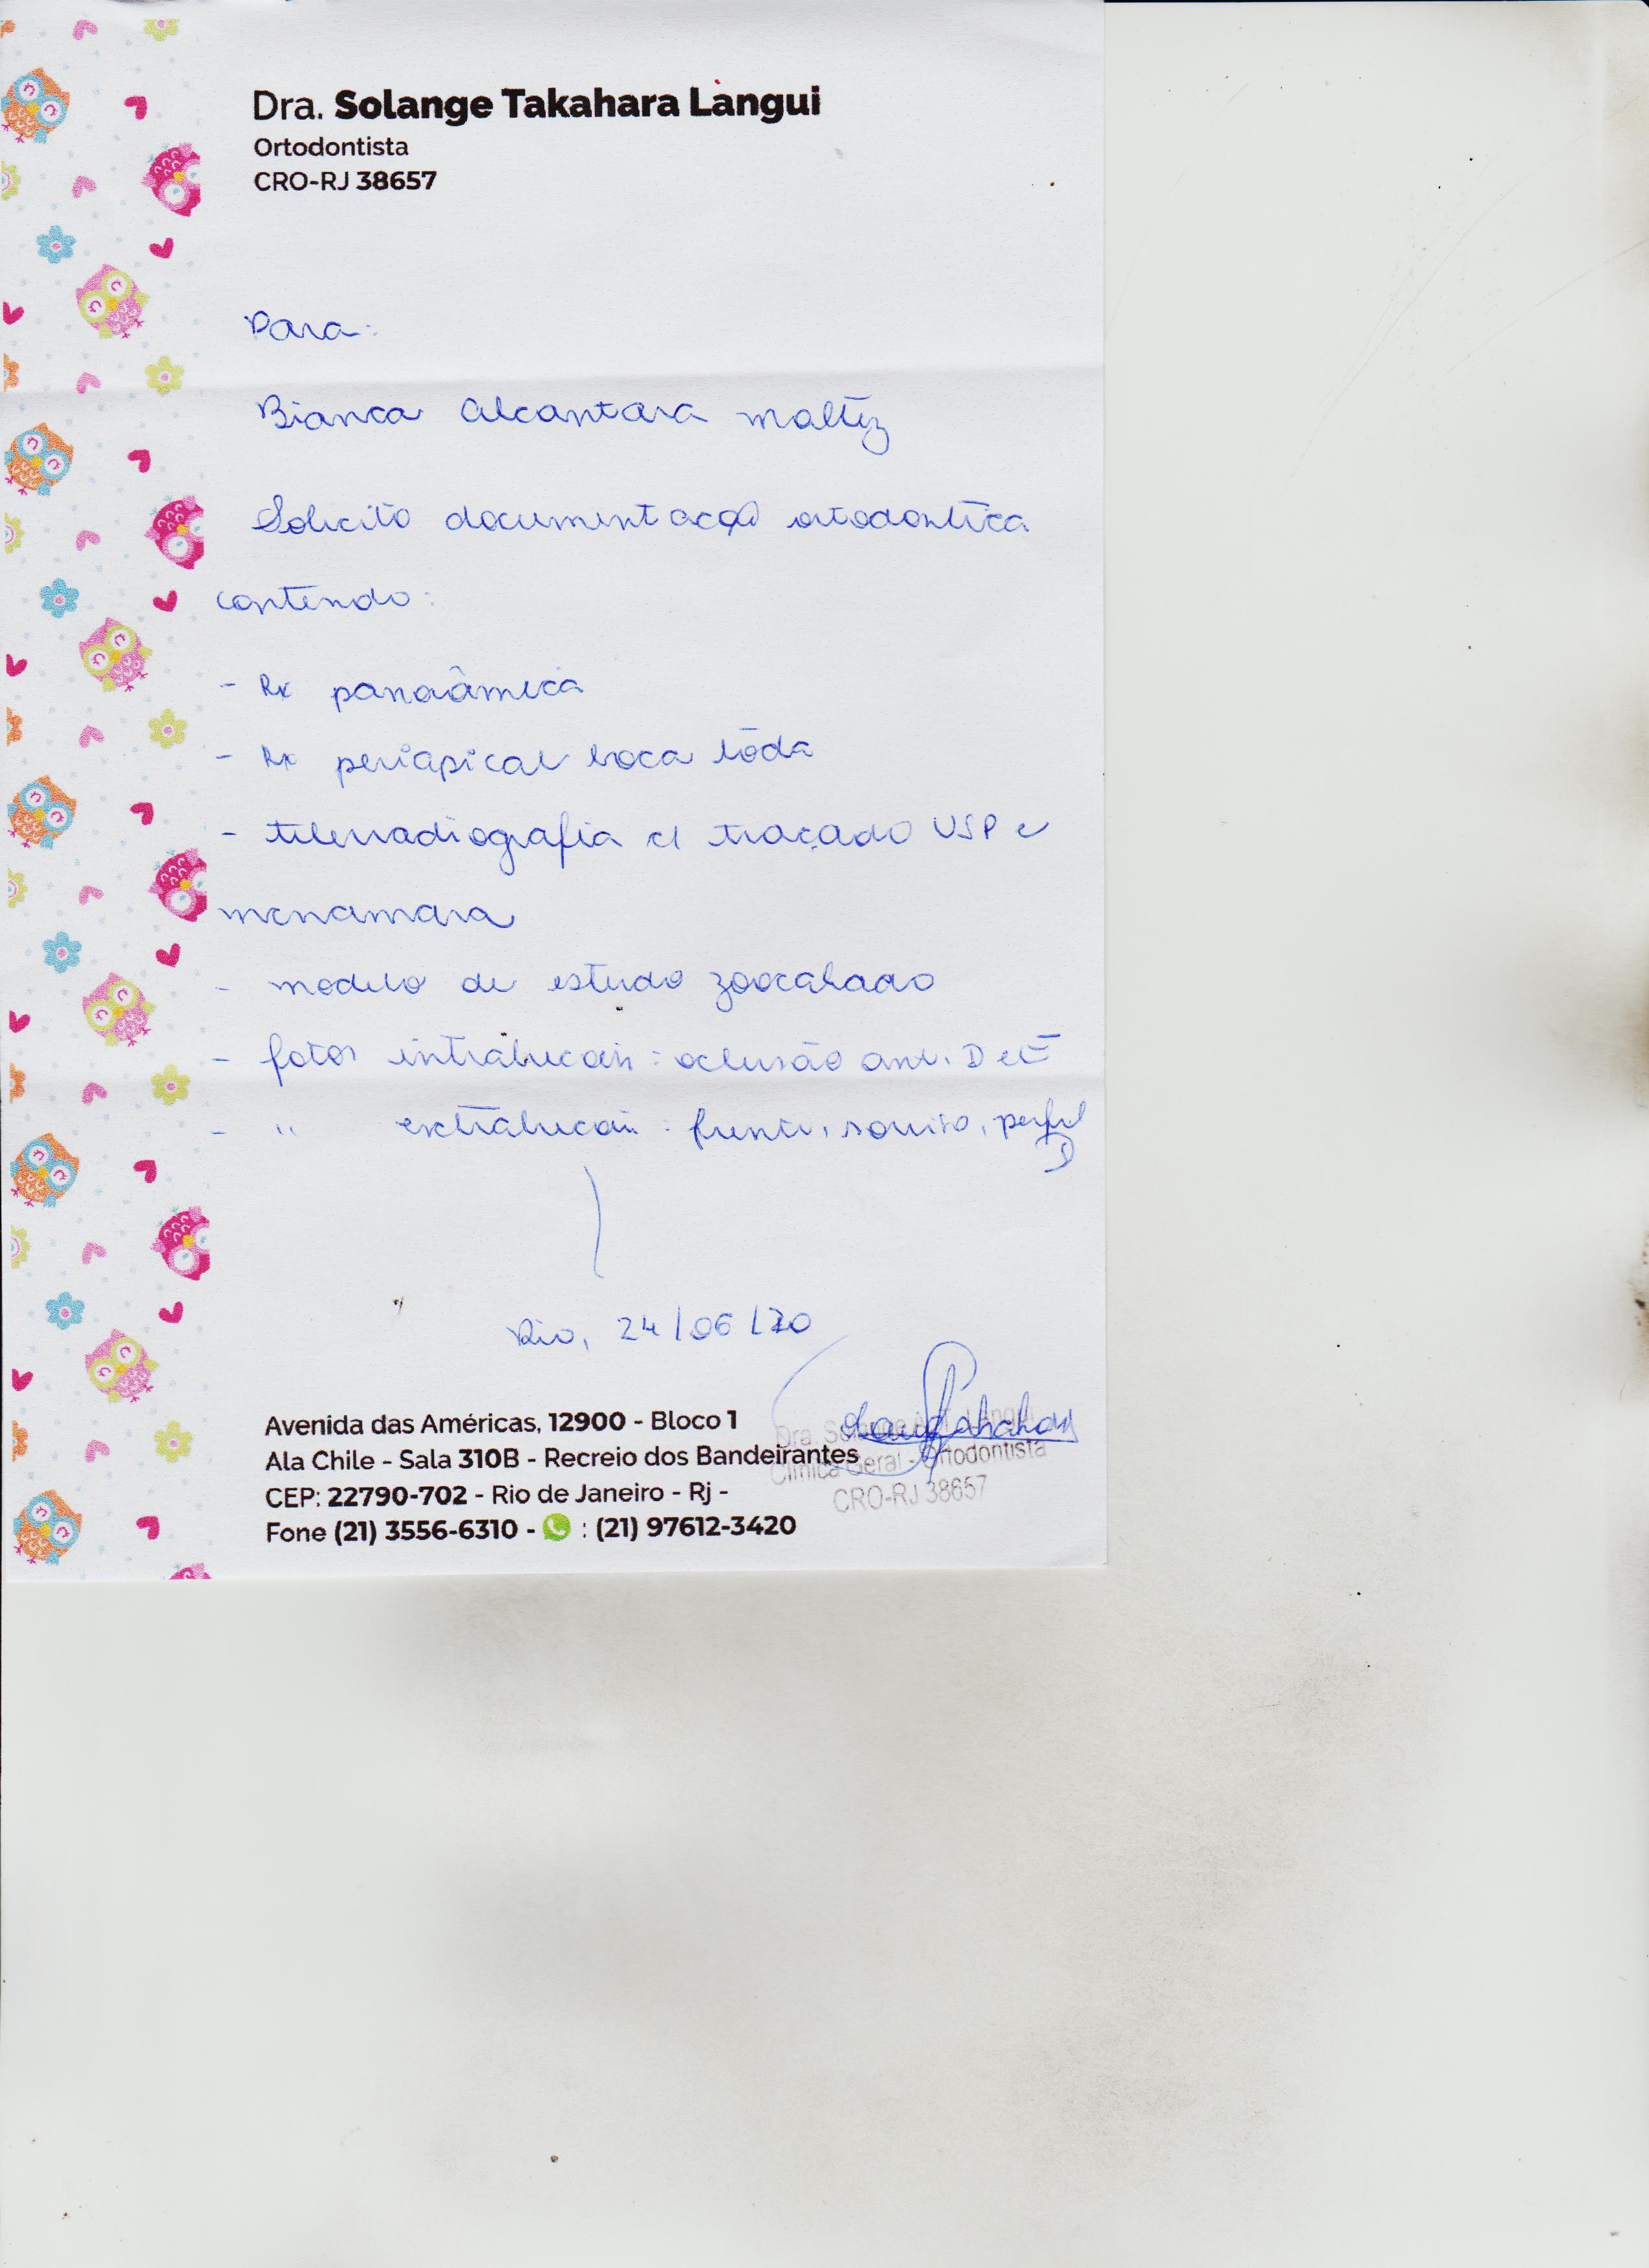 Dra. Solange Takahara Langui
Ortodontista
CRO-RJ 38657
Para:
Bianca Alcantara Maltez
Solicito documentação ortodontica
contendo:
- Rx panorâmica
- Rx periapical boca tôda
- telerradiografia c/ traçado USP e
mcnamara
- modelo de estudo zoocalado
- fotos intrabucais: oclusão ant. D e E
- " extrabucais: frente, sorriso, perfil
D
Rio, 24/06/20
Avenida das Américas, 12900 - Bloco 1
Ala Chile - Sala 310B - Recreio dos Bandeirantes
CEP: 22790-702 - Rio de Janeiro - Rj -
Fone (21) 3556-6310 - : (21) 97612-3420
Dra. Solange Langui
Clínica Geral - Ortodontista
CRO-RJ 38657